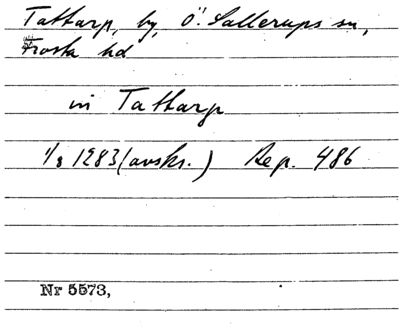 Tattarp, by, Ö. Sallerups sn,
Frosta hd
in Tattarp
1/8 1283 (avskr.) Rep. 486
Nr 5573,